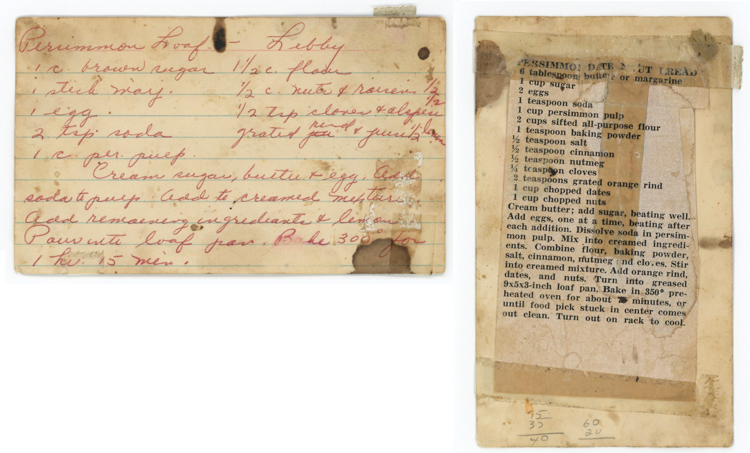 Persimmon Loaf - Libby
1 c. brown sugar 1 1/2 c. flour
1 stick marj. 1/2 c. nuts & raisins 1/2
1 egg 1/2 tsp cloves & alspice 1/2
2 tsp soda grated rind & juice 1/2
1 c. per. pulp
Cream sugar, butter & egg. Add
soda to pulp. Add to creamed mixture.
Add remaining ingredients & lemon
Pour into loaf pan. Bake 300° for
1 hr. 15 min.
PERSIMMON DATE NUT BREAD
6 tablespoons butter or margarine
1 cup sugar
2 eggs
1 teaspoon soda
1 cup persimmon pulp
2 cups sifted all-purpose flour
1 teaspoon baking powder
½ teaspoon salt
½ teaspoon cinnamon
½ teaspoon nutmeg
¼ teaspoon cloves
2 teaspoons grated orange rind
1 cup chopped dates
1 cup chopped nuts
Cream butter; add sugar, beating well.
Add eggs, one at a time, beating after
each addition. Dissolve soda in persim-
mon pulp. Mix into creamed ingredi-
ents. Combine flour, baking powder,
salt, cinnamon, nutmeg and cloves. Stir
into creamed mixture. Add orange rind,
dates, and nuts. Turn into greased
9x5x3-inch loaf pan. Bake in 350° pre-
heated oven for about minutes, or
until food pick stuck in center comes
out clean. Turn out on rack to cool.
60
40 20